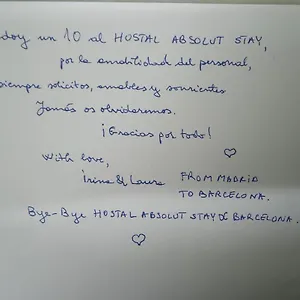 doy un 10 al HOSTAL ABSOLUT STAY,
por la amabilidad del personal,
siempre solícitos, amables y sonrientes
Jamás os olvidaremos.
¡Gracias por todo!
With love,
Irina & Laura FROM MADRID
TO BARCELONA.
Bye-Bye HOSTAL ABSOLUT STAY BARCELONA.